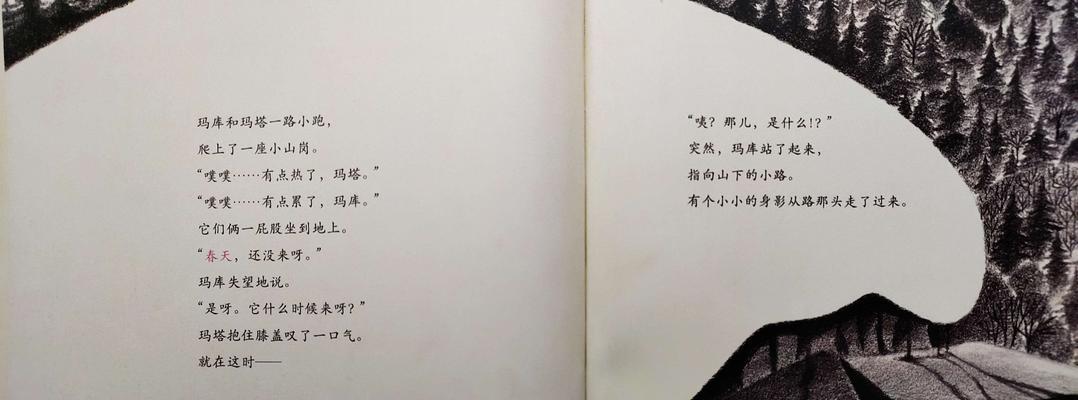 玛库和玛塔一路小跑，
爬上了一座小山岗。
“噗噗……有点热了，玛塔。”
“噗噗……有点累了，玛库。”
它们俩一屁股坐到地上。
“春天，还没来呀。”
玛库失望地说。
“是呀。它什么时候来呀？”
玛塔抱住膝盖叹了一口气。
就在这时——
“咦？那儿，是什么!？”
突然，玛库站了起来，
指向山下的小路。
有个小小的身影从路那头走了过来。